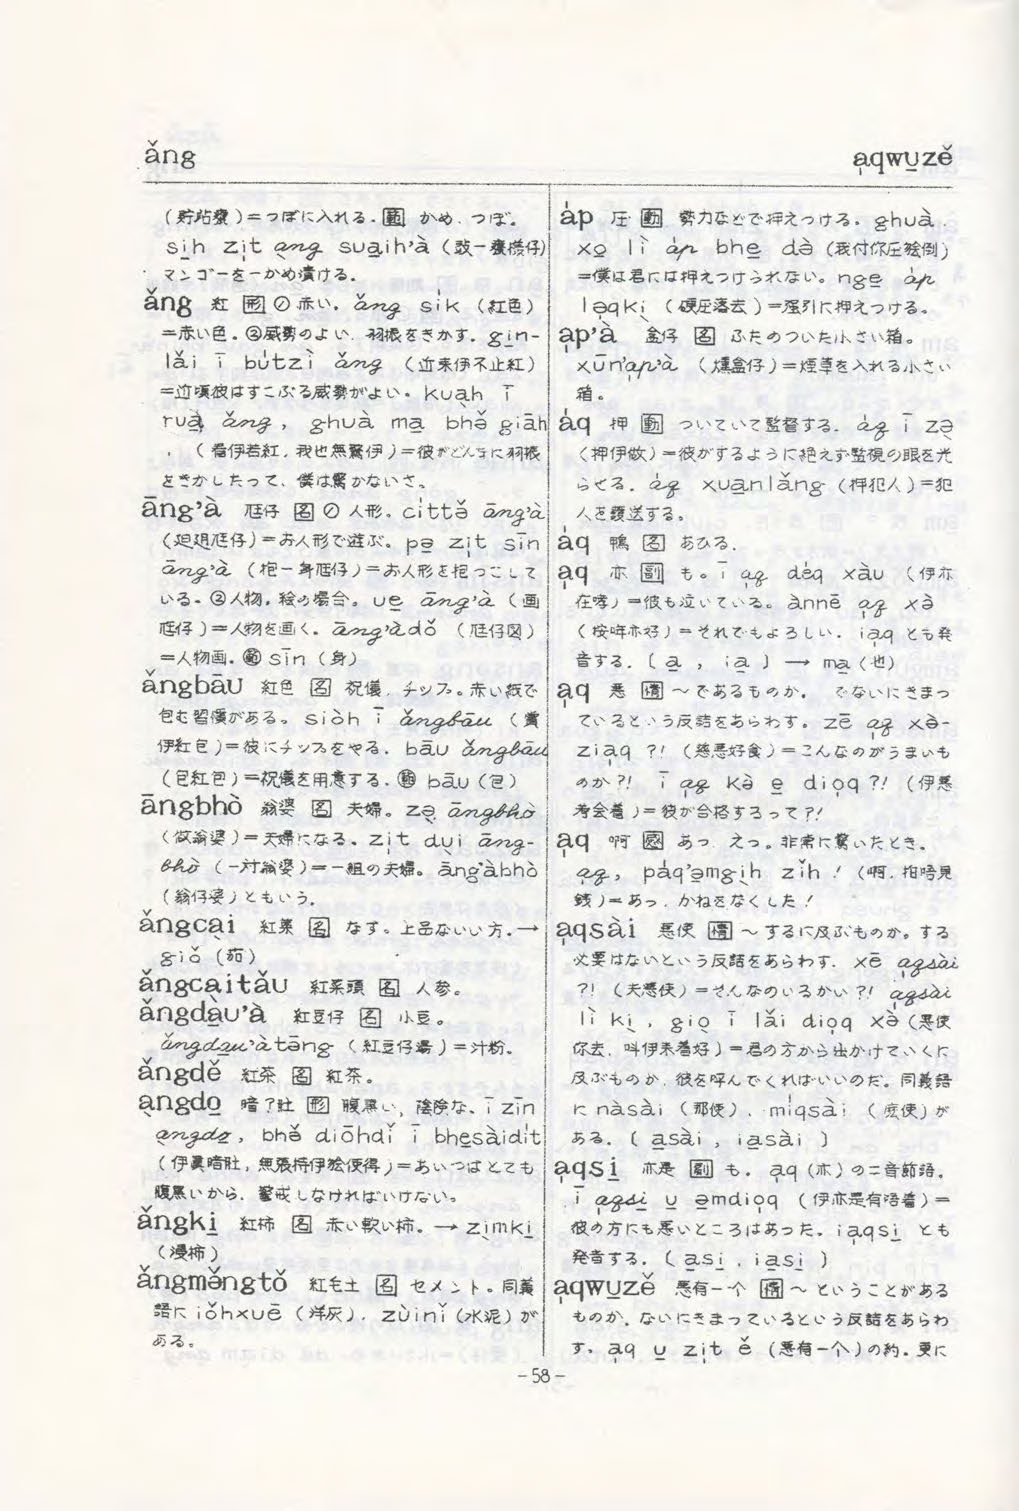 ǎng
a̩qwu̱zě
(貯站甕)=つぼに入れる.範 かめ.つぼ.
si̱h zi̩t a̱ng sua̱ih'à (鼓一甕檨仔)
マンゴーを一かめ漬ける.
ǎng 紅 形 ① 赤い. ǎng sik (紅色)
=赤い色.②威勢のよい.羽振をきかす. gi̱n-
lǎi ī bu̍tzì ǎng (近来伊不止紅)
=近頃彼はすこぶる威勢がよい. kua̱h ī
ǎng, ghuà ma̱ bhě giāh
(看伊若紅,我也無驚伊)=彼がどんなに羽振
をきかしたって,僕は驚かないさ。
āng'à 尪仔 名 ① 人形. cittě āng'à
(𨑨迌尪仔)=お人形で遊ぶ. pə̱ zi̩t sīn
āng'à (抱一身尪仔)=お人形を抱っこして
いる.②人物,絵の場合. ue̱ āng'à (画
尪仔)=人物を画く. āng'àdǒ (尪仔図)
=人物画. 助 sīn (身)
ǎngbāu 紅包 名 祝儀.チップ.赤い紙で
包む習慣がある. siòh ī ǎngbāu (賞
伊紅包)=彼にチップをやる. bāu ǎngbāu
(包紅包)=祝儀を用意する. 助 bāu (包)
āngbhò 翁婆 名 夫婦. āngbhò
(做翁婆)=夫婦になる. zi̩t dui āng-
bhò (一対翁婆)=一組の夫婦. āng'àbhò
(翁仔婆)ともいう.
ǎngcai 紅菜 名 なす.上品ないい方.→
giǒ (茄)
ǎngcaitǎu 紅菜頭 名 人参.
ǎngda̱u'à 紅豆仔 名 小豆.
ǎngda̱u'àtəng (紅豆仔湯)=汁粉.
ǎngdě 紅茶 名 紅茶.
angdo̱ 暗了肚 形 腹黒い,陰険な. ī zīn
angdo̱, bhě diōhdí ī bhe̱sàidi̍t
(伊真暗肚,無張持伊𣍐使得)=あいつはとても
腹黒いから,警戒しなければいけない.
ǎngki̱ 紅柿 名 赤い軟い柿. → zimki̱
(浸柿)
ǎngmə̌ngtǒ 紅毛土 名 セメント.同義
語に iǒhxuē (洋灰), zùinǐ (水泥)が
ある.
a̍p 圧 動 勢力などで押えつける. ghuà
xo̱ lì a̍p bhe̱ dà (我付你圧𣍐倒)
=僕は君には押えつけられない. nge̱ a̍p
lə̩qki̩ (硬圧落去)=強引に押えつける.
a̩p'à 盒仔 名 ふたのついた小さい箱.
xūna̩p'à (燻盒仔)=煙草を入れる小さい
箱.
a̍q 押 動 ついていて監督する. a̍q ī zə
(押伊做)=彼がするように絶えず監視の眼を光
らせる. a̍q xua̱nlǎng (押犯人)=犯
人を護送する.
a̍q 鴨 名 あひる.
a̩q 亦 副 も. ī a̩q de̍q xàu (伊亦
在哮)=彼も泣いている. ànnē a̩q xə̀
(按哖亦好)=それでもよろしい. ia̩q とも発
音する. ( a̱ , ia̱ ) → ma̱ (也)
a̩q 悪 情 〜であるものか. でないにきまっ
ているという反語をあらわす. zē a̩q xə̀-
zia̩q ?! (慈悪好食)=こんなのがうまいも
のか?! ī a̩q kə̀ e̱ dio̩q ?! (伊悪
考会着)=彼が合格するって?!
a̩q 啊 感 あっ.えっ.非常に驚いたとき.
a̩q, pa̍q'ə̱mgi̩h zǐh ! (啊,拍唔見
銭)=あっ,かねをなくした!
a̩qsài 悪使 情 〜するに及ぶものか.する
必要はないという反語をあらわす. xē a̩qsài
?! (夫悪使)=そんなのいるかい?! a̩qsài
lì ki̩, gio̩ ī lǎi dio̩q xə̀ (悪使
你去,叫伊来着好)=君の方から出かけていくに
及ぶものか,彼を呼んでくればいいのだ.同義語
に nàsài (那使), mi̍qsài (麼使)が
ある. ( a̱sài , ia̱sài )
a̩qsi̱ 亦是 副 も. a̩q (亦)の二音節語.
ī a̩qsi̱ u̱ ə̱mdio̩q (伊亦是有唔着)=
彼の方にも悪いところはあった. ia̩qsi̱ とも
発音する. ( a̱si̱ , ia̱si̱ )
a̩qwu̱zě 悪有一个 情 〜ということがある
ものか.ないにきまっているという反語をあらわ
す. a̩q u̱ zi̩t ě (悪有一个)の約.更に
-58-